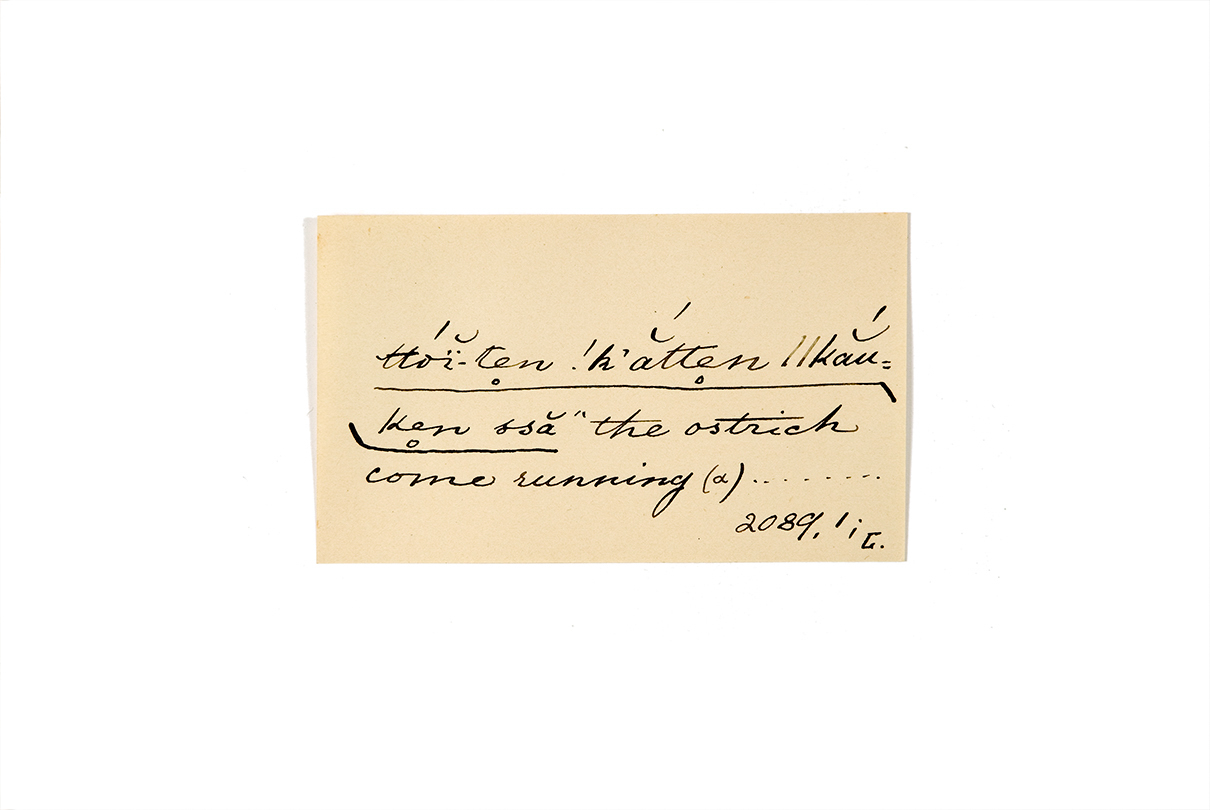 ttóï-ten̥ !k'ắtten̥ ||kắu=
ken̥ ssă" the ostrich
come running (α) ........
2089, ' i G.